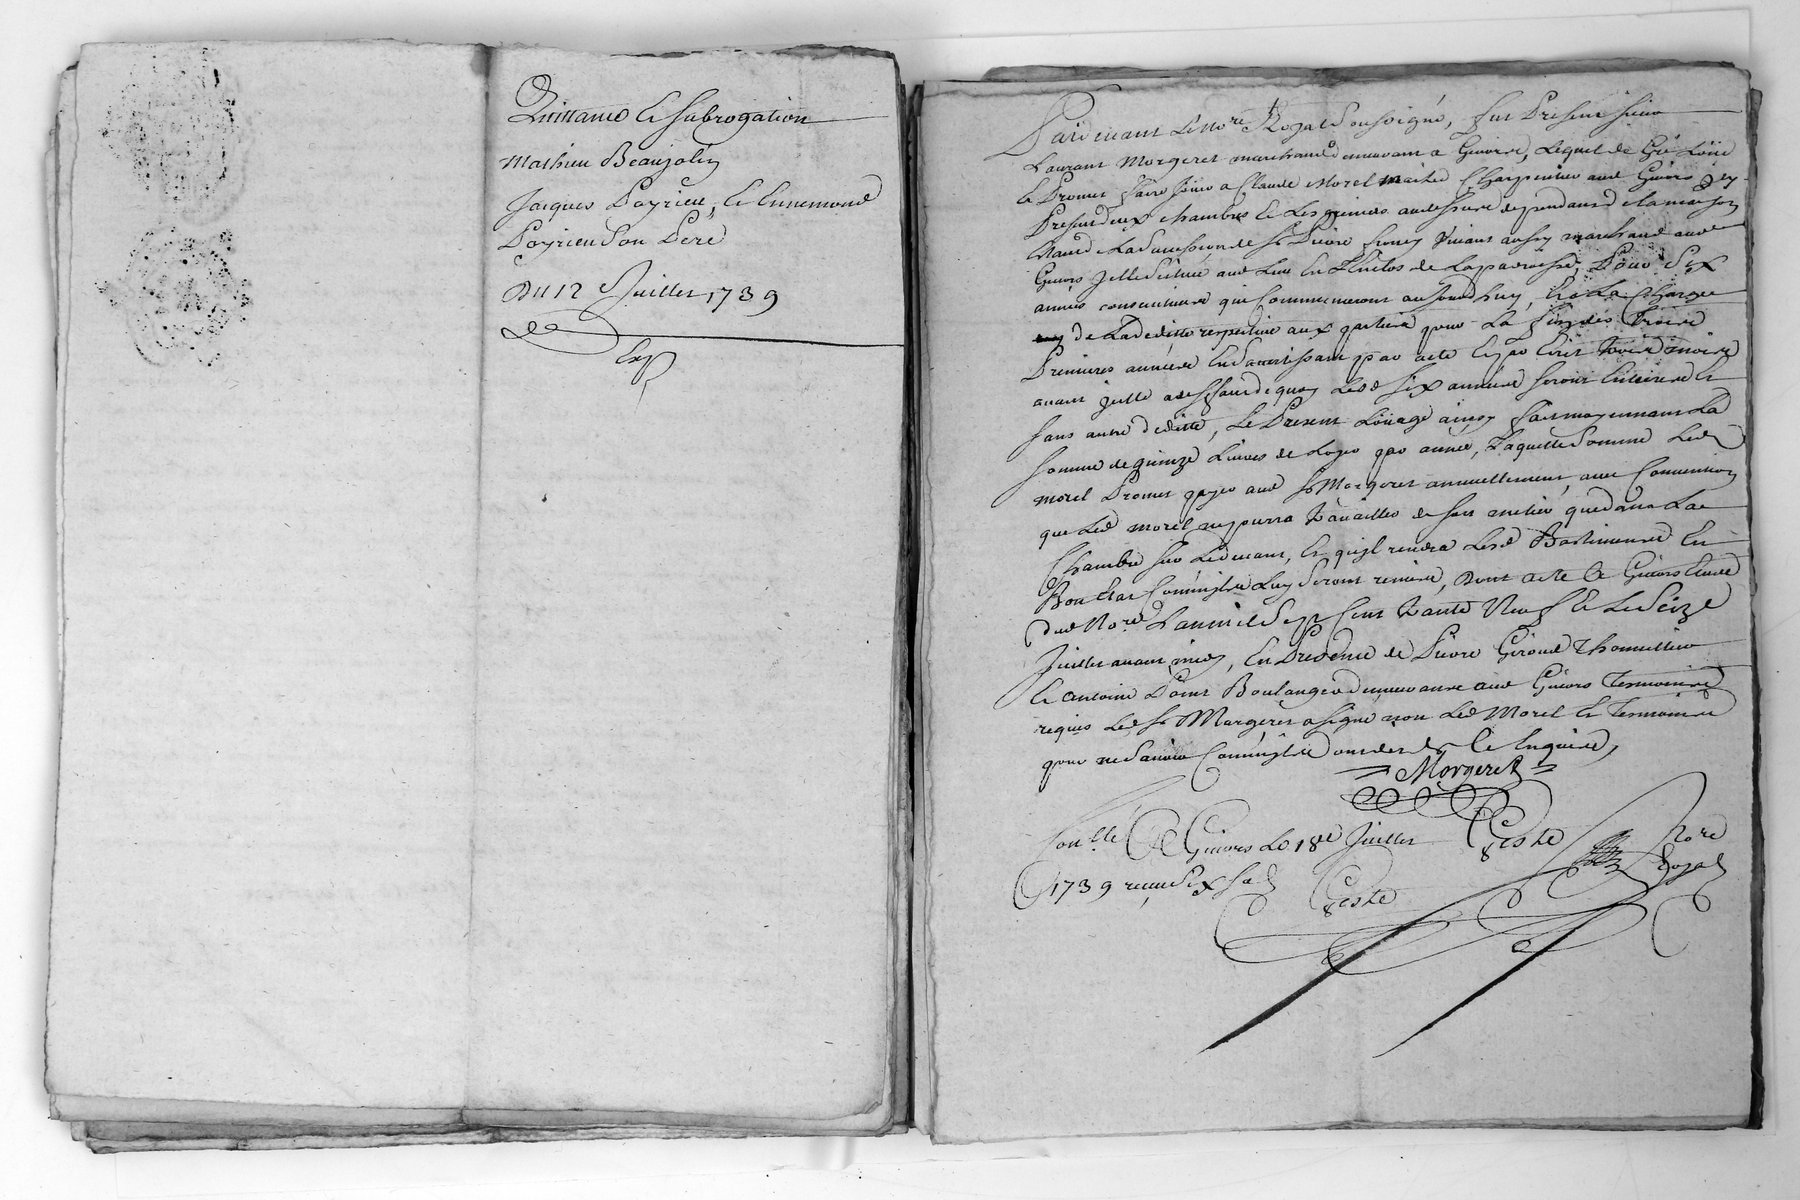 Quittance et subrogation
Mathieu Beaujolin
Jacques Poyrieu, et Ennemond
Poyrieu son Pere
Du 12 Juillet 1739
Exp
Pardevant le Nore Royal Soussigné, fut Present sieur
Laurant Morgeret marchand demeurant a Givors, lequel de Gré Loüe
et Promet faire Joüir a Claude Morel maitre Charpentier aud Givors icy
Present deux chambres et les greniers audessus dependans de la maison
estant de la Succession de sr Pierre vivant aussy marchand aud
Givors jcelle Scituée aud lieu en l'Enclos de la parroisse, Pour Six
années consecutives qui Commenceront aujourdhuy, et a La Charge
de La deditte respective aux parties pour La fin des Troise
Premieres années en S'avertissant par acte ou par Ecrit Troise moise
avant jcelle a deffaut de quoy Lesd Six années seront Entieres et
sans autre deditte, Le Present Loüage ainsy fait moyennant La
somme de quinze Livres de Loyer par année, Laquelle Somme Led
morel Promet payer aud sr Morgeret annuellement, avec Convention
que Led morel ne pourra travailler de son metier que dans La
Chambre sur Ledevant, et qu'jl rendra Lesd Bastimens En
Bon Etat Comm'jls Luy Seront remise, Dont acte a Givors Etude
dud Nore L'an mil Sept Cent Trante Neuf et Le Seize
Juillet avant midy, En Presence de Pierre Giroud Thonnellier
et Antoine Point Boulanger demeurans aud Givors Temoins
requis Led sr Morgeret a signé non Led Morel et Temoins
pour ne Savoir Comm'jls ont declaré Ce Enquise,
Morgeret
Conllé A Givors Le 18e Juillet Teste Nore
1739 recu Six s. Teste Royal